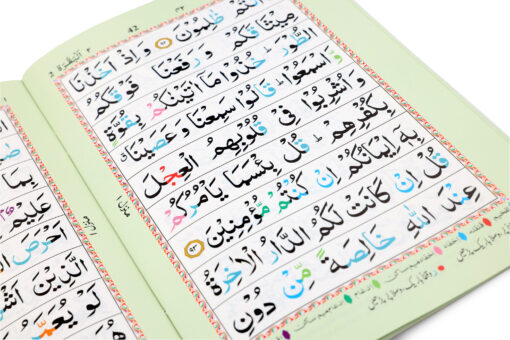 ٢ اَلْبَقَرَة ٢
42
اَنْتُمْ ظٰلِمُوْنَ ﴿۹۲﴾ وَ اِذْ اَخَذْنَا
مِيْثَاقَكُمْ وَ رَفَعْنَا فَوْقَكُمُ
الطُّوْرَ ؕ خُذُوْا مَاۤ اٰتَيْنٰكُمْ بِقُوَّةٍ
وَّ اسْمَعُوْا ؕ قَالُوْا سَمِعْنَا وَ عَصَيْنَا
وَ اُشْرِبُوْا فِيْ قُلُوْبِهِمُ الْعِجْلَ
بِكُفْرِهِمْ ؕ قُلْ بِئْسَمَا يَاْمُرُكُمْ
بِهٖۤ اِيْمَانُكُمْ اِنْ كُنْتُمْ مُّؤْمِنِيْنَ ﴿۹۳﴾
قُلْ اِنْ كَانَتْ لَكُمُ الدَّارُ الْاٰخِرَةُ
عِنْدَ اللّٰهِ خَالِصَةً مِّنْ دُوْنِ
منزل ١
بِمَا
عَلِيْمٌ
اَحْرَصَ
الَّذِيْنَ اَشْرَ
لَوْ يُعَمَّرُ
هُوَ